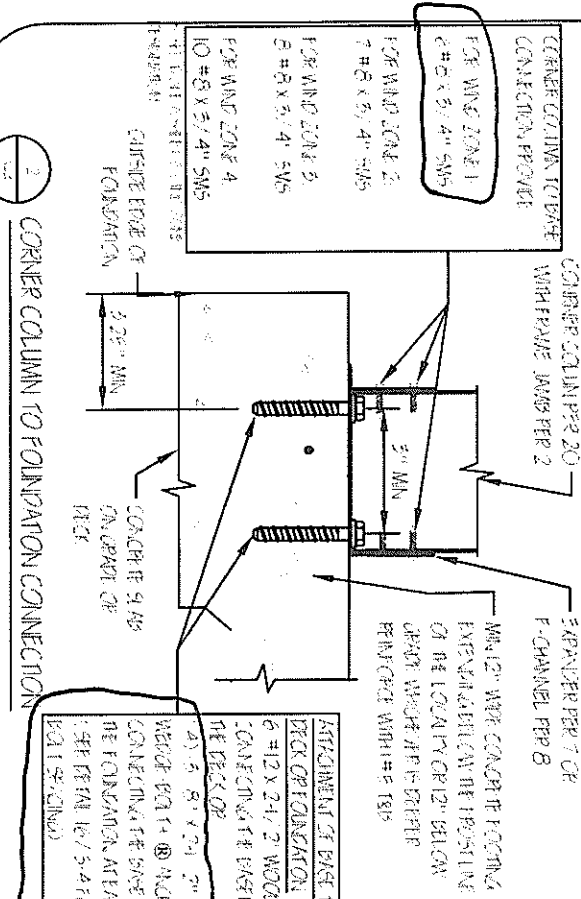 CORNER COLUMN TO BASE
CONNECTION PROVIDE
FOR WIND ZONE 1
6 #8 x 3/4" SMS
FOR WIND ZONE 2
7 #8 x 3/4" SMS
FOR WIND ZONE 3
8 #8 x 3/4" SMS
FOR WIND ZONE 4
10 #8 x 3/4" SMS
OUTSIDE EDGE OF
FOUNDATION
MIN
5" MIN
WITH FRAME JAMB PER 2
EXPANDER PER 7 OR
F-CHANNEL PER 8
MIN 12" WIDE CONCRETE FOOTING
EXTENDING BELOW THE FROST LINE
OF THE LOCALITY OR 12" BELOW
GRADE WHICHEVER IS DEEPER
REINFORCE WITH 1 #5
CONCRETE SLAB
ON GRADE OR
DECK
ATTACHMENT OF BASE
DECK OR FOUNDATION
6 #12 x 2-1/2" WOOD
CONNECTING THE BASE
THE DECK OR
BOLT
CONNECTING THE BASE
THE FOUNDATION
SEE DETAIL
BOLT SPACING)
2
CORNER COLUMN TO FOUNDATION CONNECTION